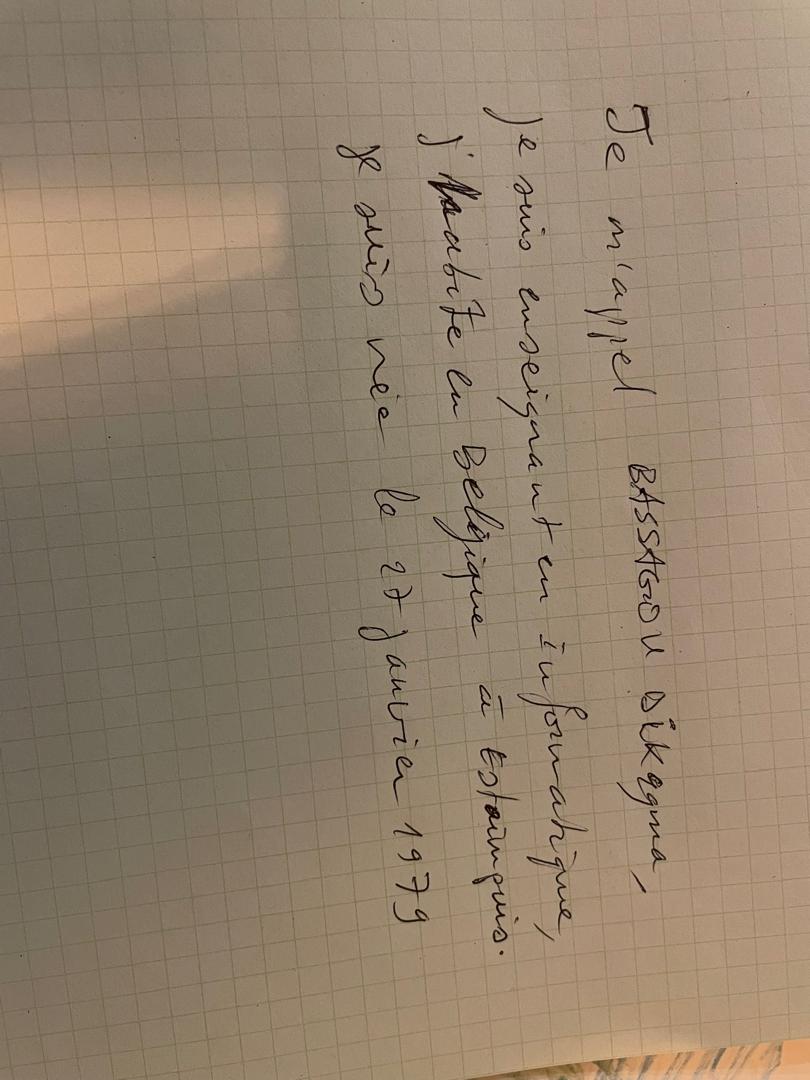 Je m'appel BASSAGOU
je suis enseignant en informatique,
j'habite en Belgique à Estaimpuis.
je suis née le 27 janvier 1979